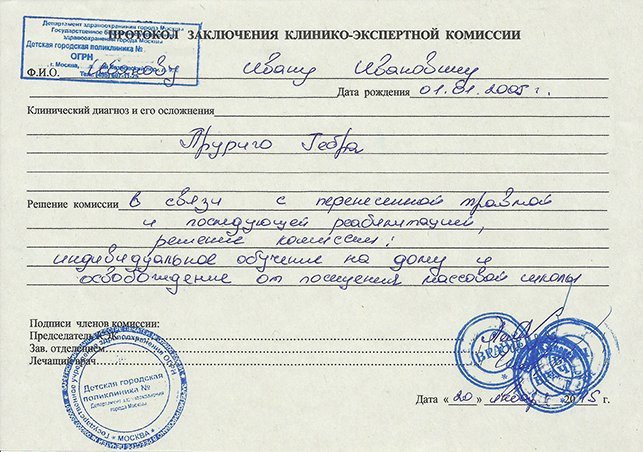 Департамент здравоохранения города Москвы
Государственное
здравоохранения города Москвы
Детская городская поликлиника №
ОГРН
г. Москва,
ПРОТОКОЛ ЗАКЛЮЧЕНИЯ КЛИНИКО-ЭКСПЕРТНОЙ КОМИССИИ
Ф.И.О. Иванову Ивану Ивановичу
Дата рождения 01.01.2005 г.
Клинический диагноз и его осложнения
Пруриго Гебра
Решение комиссии в связи с перенесенной травмой
и последующей реабилитацией,
решение комиссии:
индивидуальное обучение на дому и
освобождение от посещения массовой школы
Подписи членов комиссии:
Председатель КЭК
Зав. отделением
Лечащий врач
Государственное учреждение здравоохранения
Детская городская
поликлиника №
Департамент здравоохранения
города Москвы
* МОСКВА *
ВРАЧ
Дата « 20 » 2015 г.